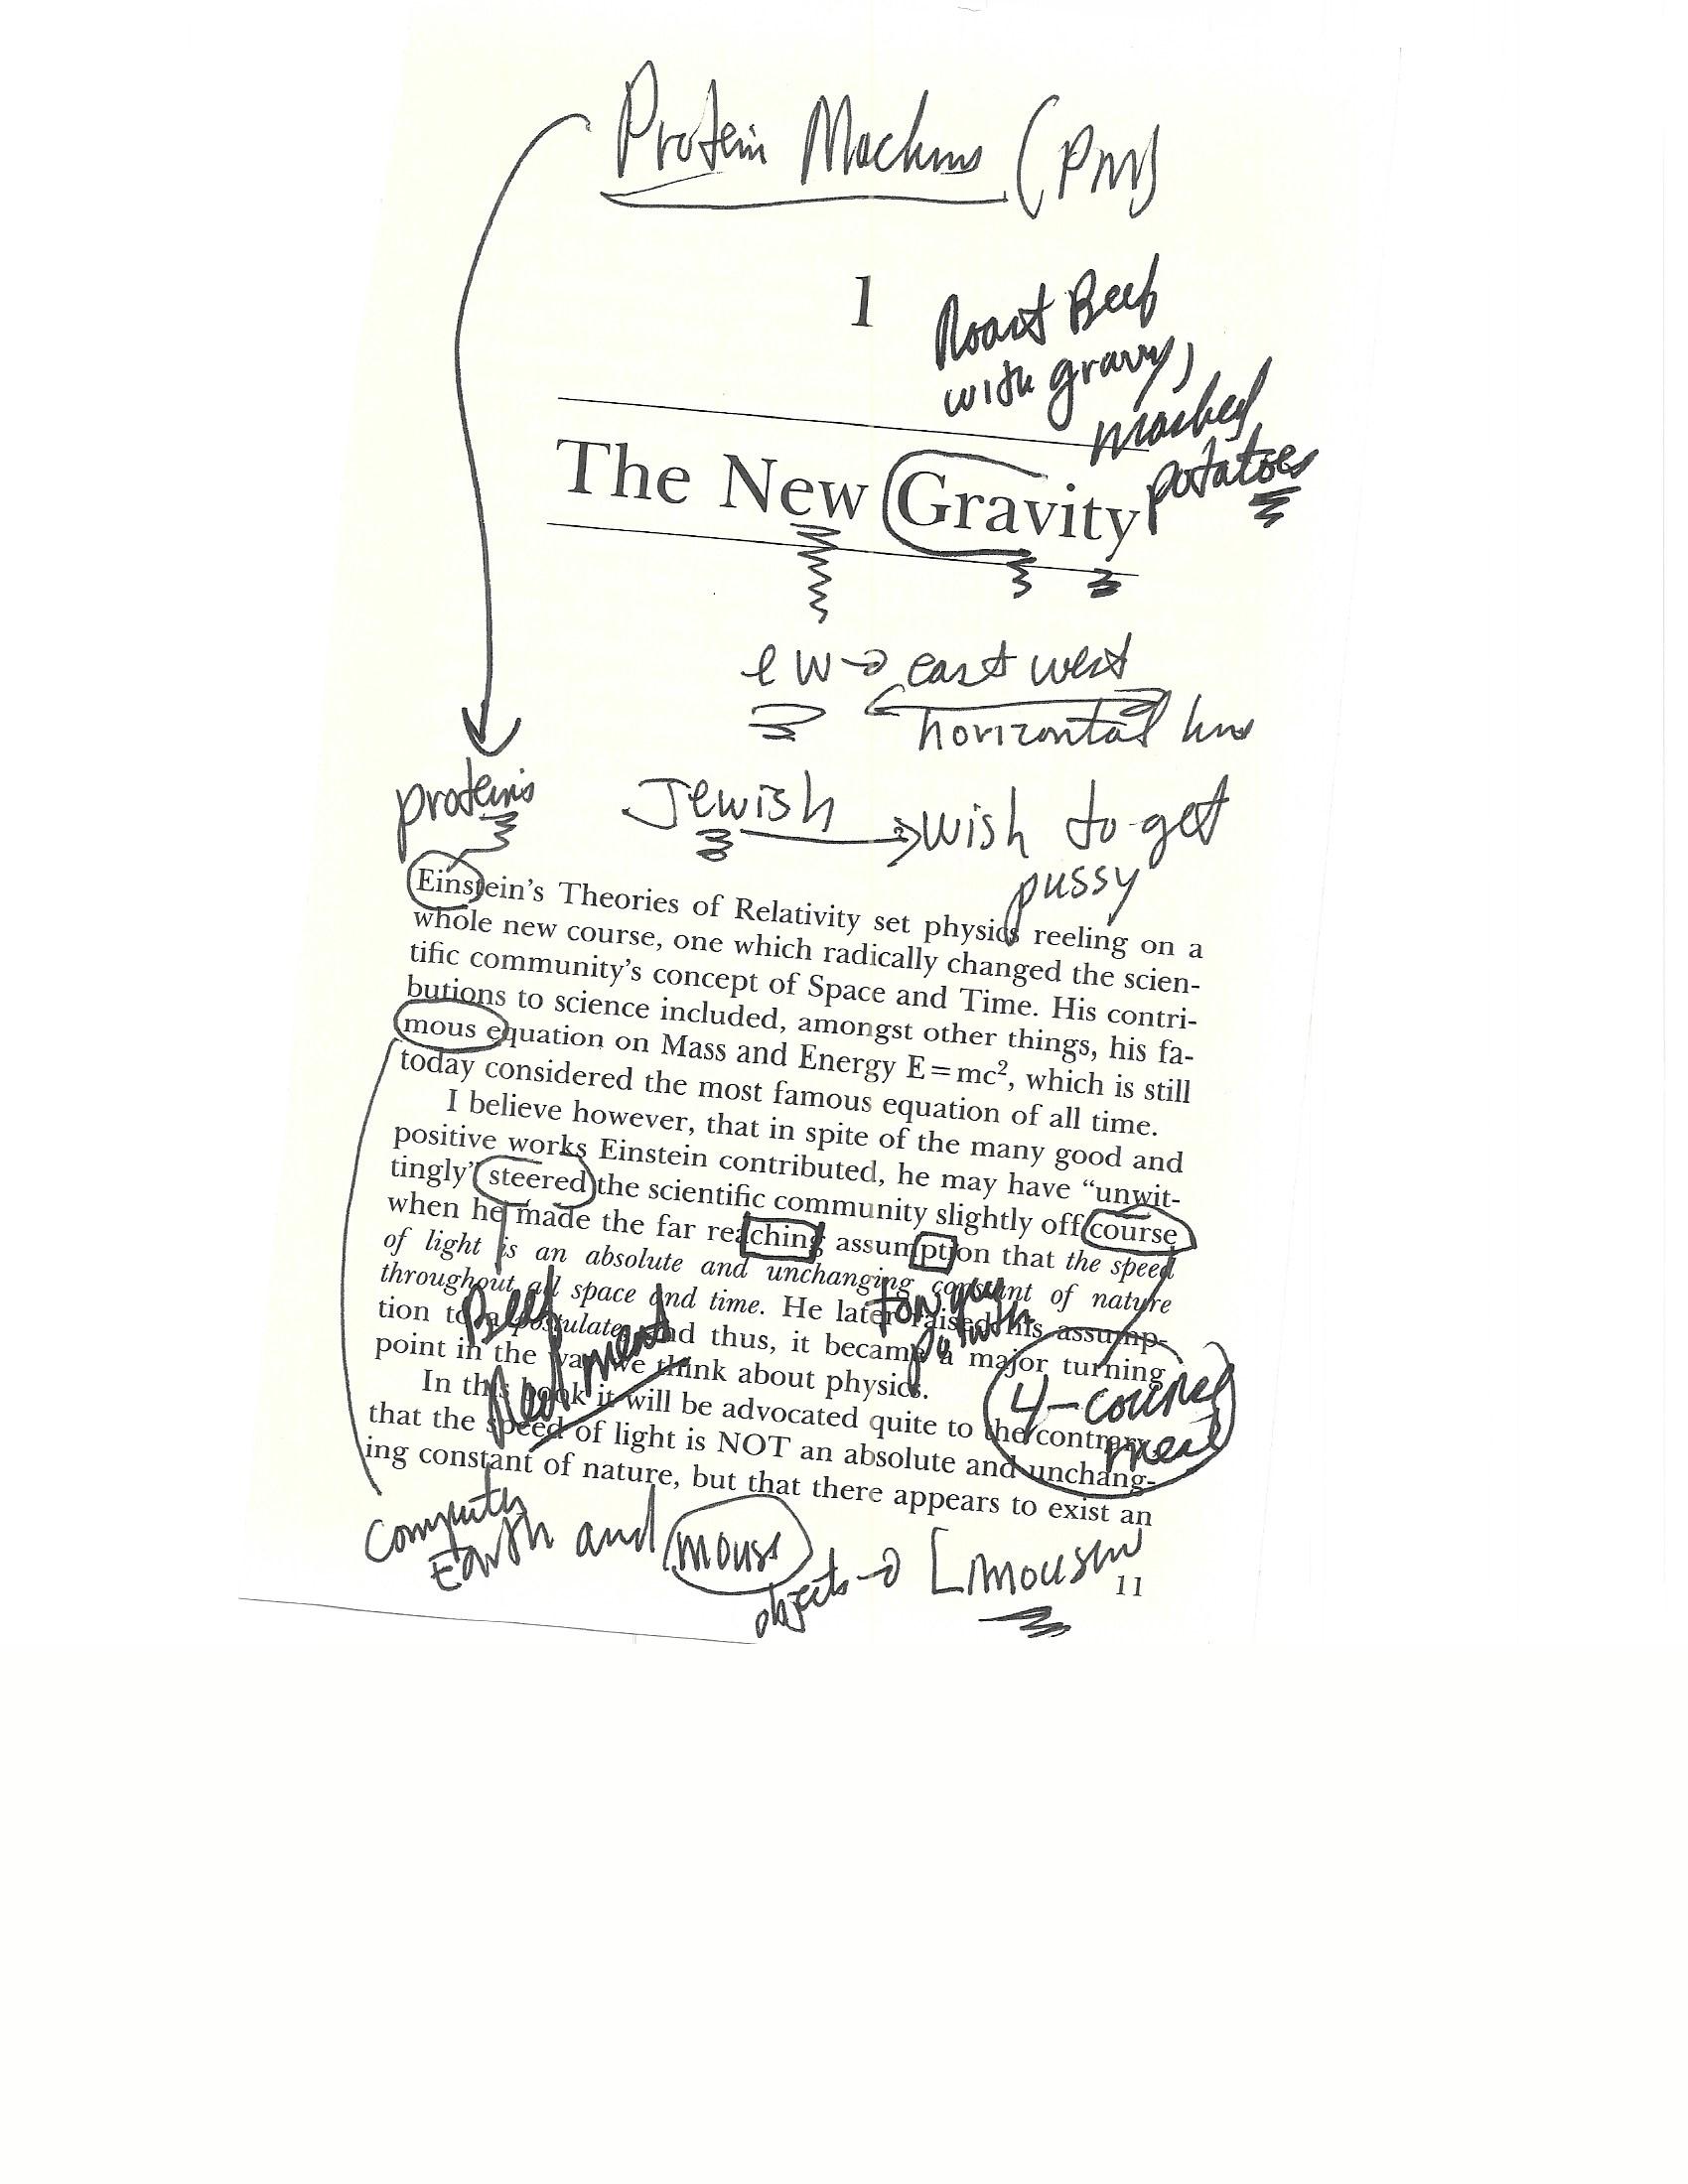 Protein Machines (PM)
1
Roast Beef
with gravy,
mashed
potatoes
The New Gravity
ew → east west
horizontal line
proteins
Jewish → wish to get
pussy
Einstein's Theories of Relativity set physics reeling on a
whole new course, one which radically changed the scien-
tific community's concept of Space and Time. His contri-
butions to science included, amongst other things, his fa-
mous equation on Mass and Energy E=mc², which is still
today considered the most famous equation of all time.
I believe however, that in spite of the many good and
positive works Einstein contributed, he may have “unwit-
tingly” steered the scientific community slightly off course
when he made the far reaching assumption that the speed
of light is an absolute and unchanging constant of nature
throughout all space and time. He later raised his assump-
tion to a postulate, and thus, it became a major turning
point in the way we think about physics.
Beef
Red meat
4-course
meal
In this book it will be advocated quite to the contrary,
that the speed of light is NOT an absolute and unchang-
ing constant of nature, but that there appears to exist an
computer
Earth and mouse
objects → Limousine
11